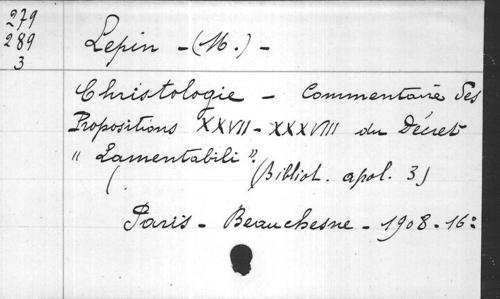 279
289
3
Lepin - (M.) -
Christologie - Commentaire des
Propositions XXVII - XXXVIII du Décret
"Lamentabili".
( (Bibliot. apol. 3)
Paris - Beauchesne - 1908 - 16: